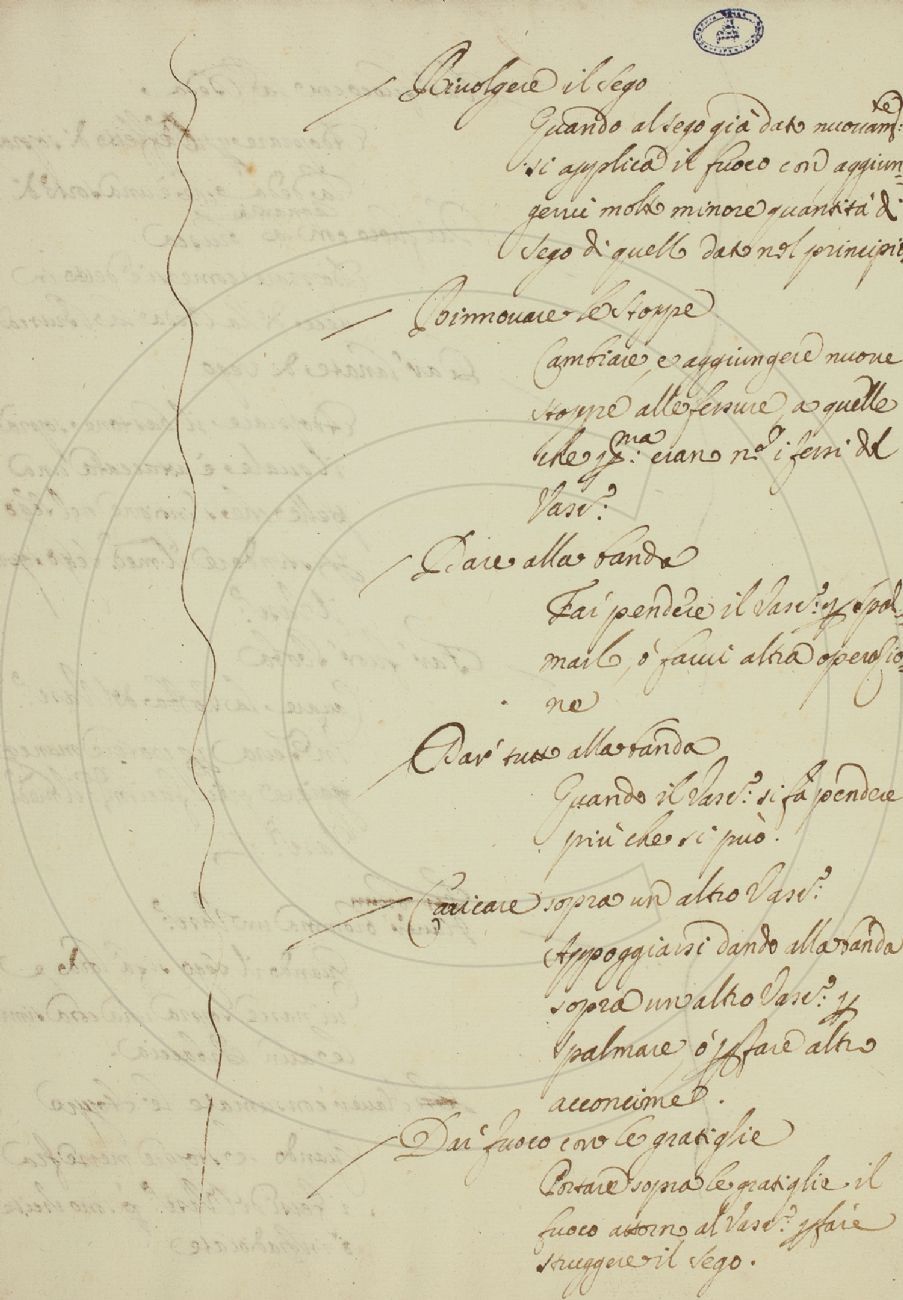 Rivolgere il sego
Quando al sego già dato nuovam:te
si applica il fuoco con aggiun-
gervi molto minore quantità di
sego di quello dato nel principio
Rinnovare le stoppe
Cambiare, e aggiungere nuove
stoppe alle fessure, a quelle
che p:ma erano ne i fessi del
Vasc:o
Dare alla banda
Far pendere il Vasc:o p spal-
marlo, o farvi altra operazio-
ne
Dar tutto alla banda
Quando il Vasc:o si fà pendere
più che si può.
Caricare sopra un altro Vasc:o
Appoggiarsi dando alla banda
sopra un altro Vasc:o p
spalmare, ò p fare altro
acconcime.
Dar fuoco con le gratiglie
Portare sopra le gratiglie il
fuoco attorno al Vasc:o p fare
struggere il sego.